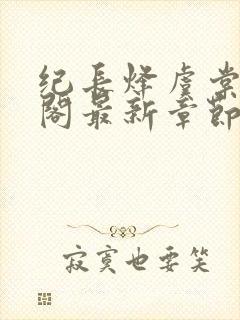 纪长烽虞棠
阁最新章节
寂寞也要笑